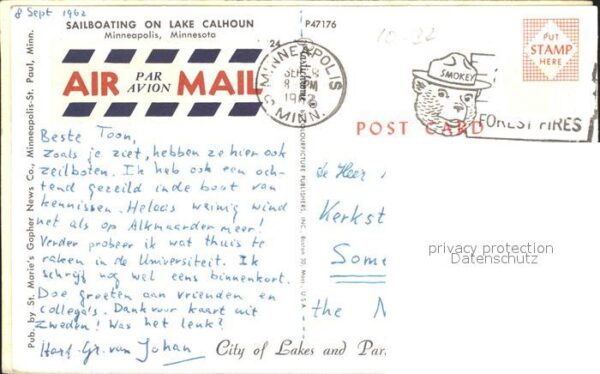 8 Sept 1962
SAILBOATING ON LAKE CALHOUN
Minneapolis, Minnesota
P47176
10-32
AIR PAR AVION MAIL
MINNEAPOLIS
SEP 8
PM
1962
MINN.
SMOKEY
FOREST FIRES
PUT
STAMP
HERE
POST CARD
Beste Toon,
Zoals je ziet, hebben ze hier ook
zeilboten. Ik heb ook een och-
tend gezeild in de boot van
kennissen. Helaas weinig wind
net als op Alkmaardermeer!
Verder probeer ik wat thuis te
raken in de Universiteit. Ik
schrijf nog wel eens binnenkort.
Doe groeten aan vrienden en
collega's. Dank voor kaart uit
Zweden! Was het leuk?
Hart. gr. van Johan
de Heer
Kerkst
Some
the N
privacy protection
Datenschutz
City of Lakes and Par
Pub. by St. Marie's Gopher News Co., Minneapolis-St. Paul, Minn.
COLOURPICTURE PUBLISHERS, INC. Boston 30 Mass., U.S.A.